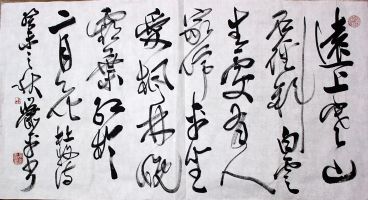 遠上寒山
石徑斜白雲
生處有人
家停車坐
愛楓林晚
霜葉紅於
二月花杜牧詩
癸未之秋